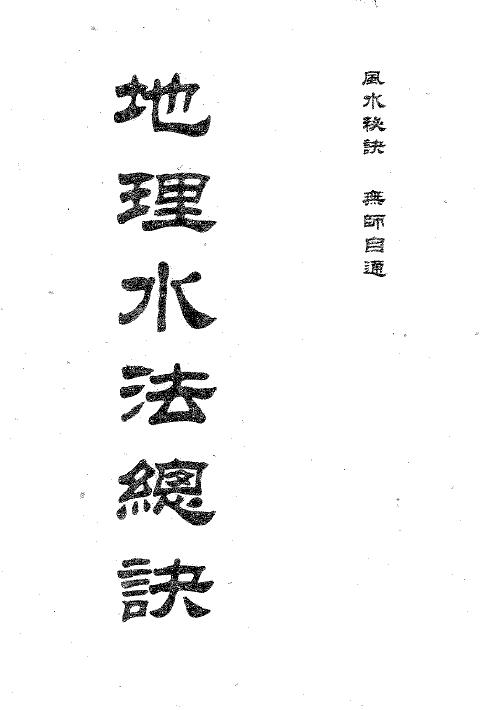 風水秘訣 無師自通
地理水法總訣